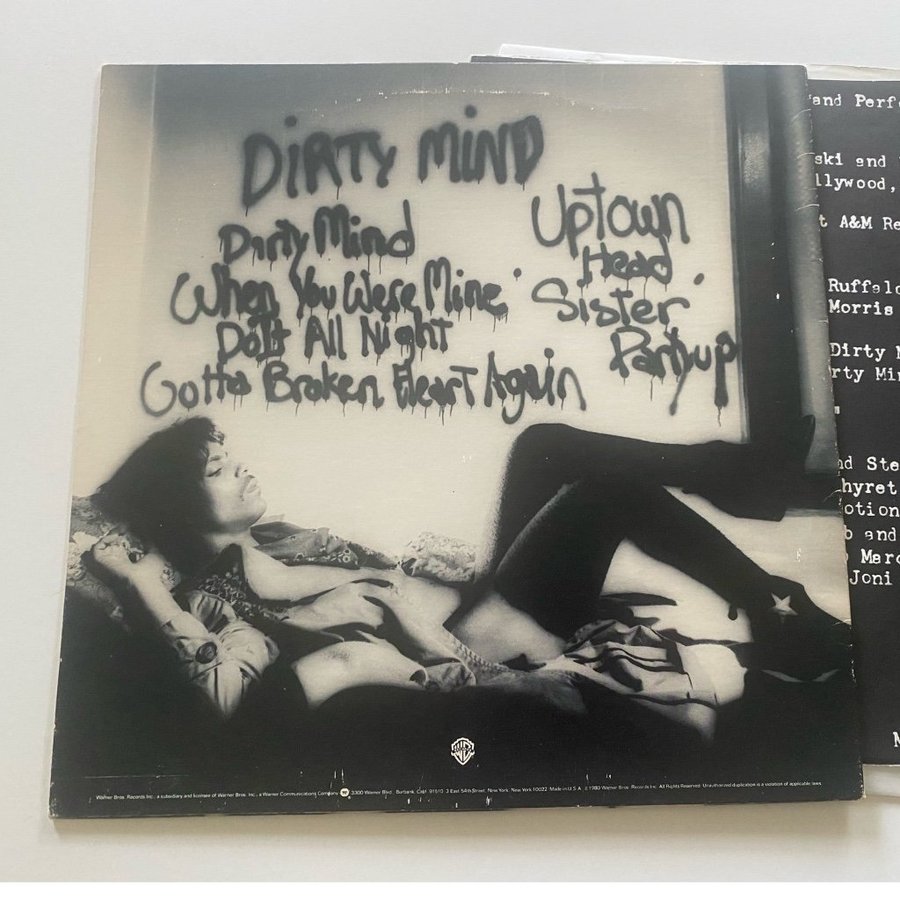 DiRTY MiND
Dirty Mind
When You Were Mine
Do It All Night
Gotta Broken Heart Again
Uptown
Head
Sister
Partyup
WB
Warner Bros. Records Inc., a subsidiary and licensee of Warner Bros. Inc., a Warner Communications Company 3300 Warner Blvd., Burbank, Calif. 91510 3 East 54th Street, New York, New York 10022 Made in U.S.A. © 1980 Warner Bros. Records Inc. All Rights Reserved. Unauthorized duplication is a violation of applicable laws.
and Perf
ski and
llywood,
t A&M Re
Ruffalo
Morris
Dirty M
rty Min
nd Ste
hyret
otion
b and
Marc
Joni
M